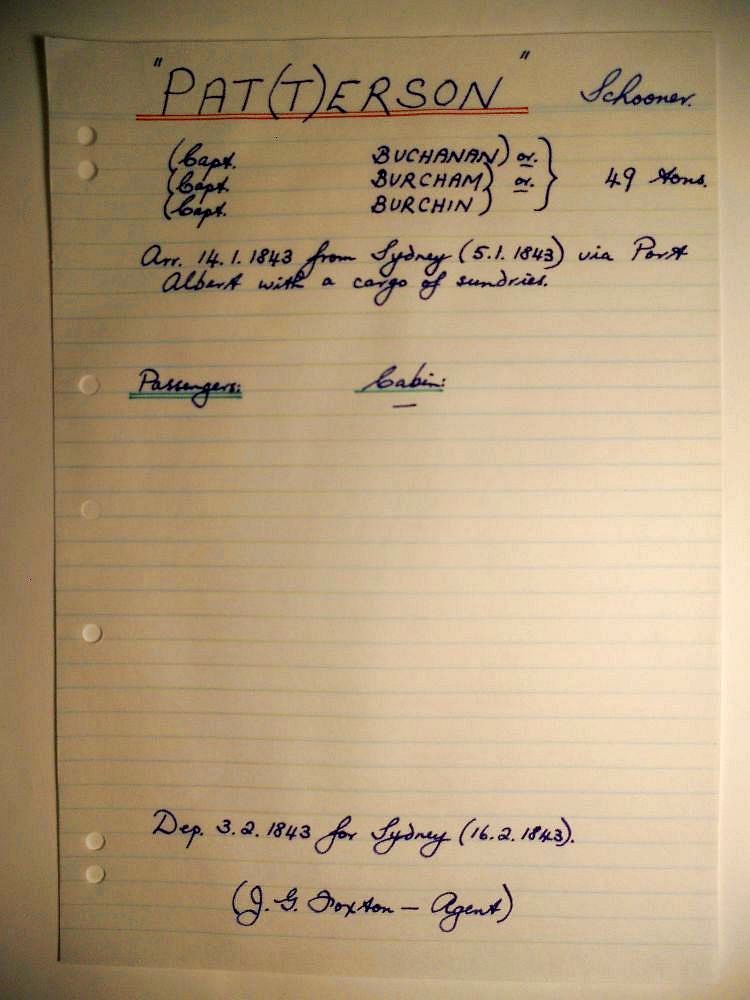 "PAT(T)ERSON" Schooner.
(Capt. BUCHANAN) or.
(Capt. BURCHAM) or. } 49 tons.
(Capt. BURCHIN)
Arr. 14.1.1843 from Sydney (5.1.1843) via Port
Albert with a cargo of sundries.
Passengers: Cabin:
—
Dep. 3.2.1843 for Sydney (16.2.1843).
(J. G. Foxton — Agent)